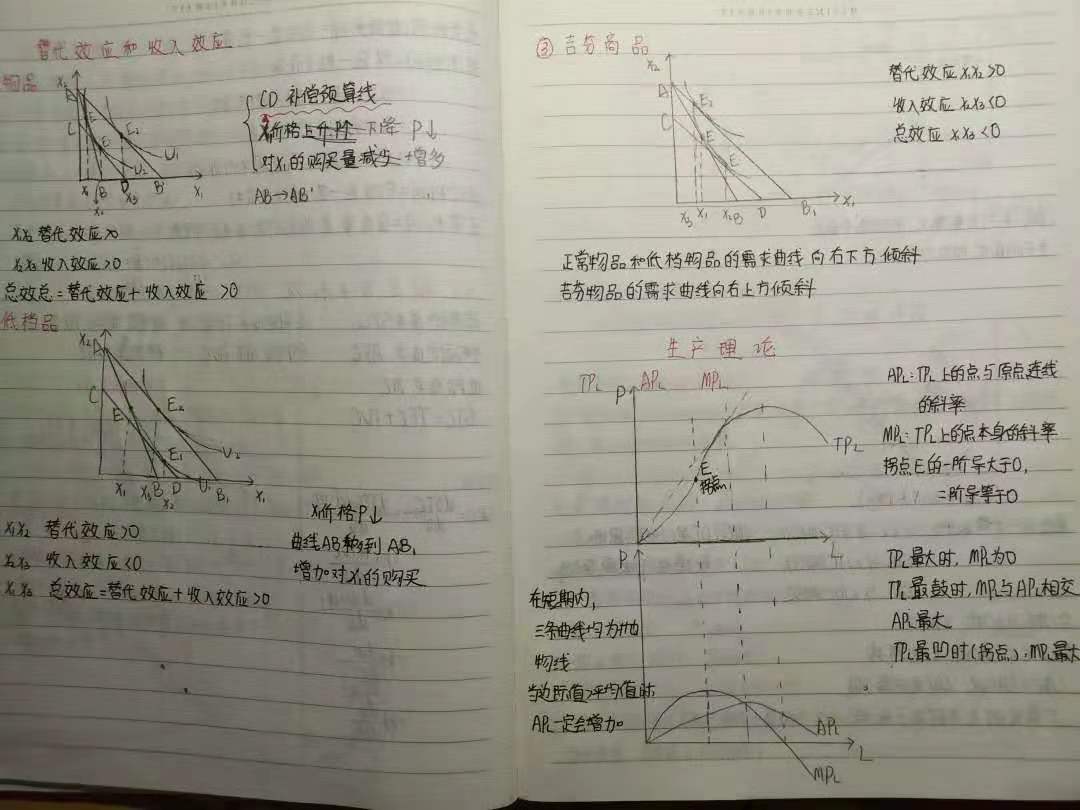 替代效应和收入效应
物品
X₂
A
C
E
E₂
U₁
U₂
X₁ B D B' X₁
X₂ X₃
CD 补偿预算线
价格上升时 下降 P↓
对X₁的购买量减少 增多
AB→AB'
X₁X₂ 替代效应>0
X₂X₃ 收入效应>0
总效总=替代效应+收入效应 >0
低档品
X₂
A
C
E
E₂
E₁
U₂
X₁ X₃ B D U₁ B₁ X₁
X₂
X₁价格P↓
曲线AB移到AB₁
增加对X₁的购买
X₁X₂ 替代效应>0
X₂X₃ 收入效应<0
X₁X₃ 总效应=替代效应+收入效应>0
③ 吉芬商品
X₂
A
C
E₂
E
E
X₃ X₁ X₂B D B₁ X₁
替代效应 X₁X₂>0
收入效应 X₂X₃<0
总效应 X₁X₃<0
正常物品和低档物品的需求曲线向右下方倾斜
吉芬物品的需求曲线向右上方倾斜
生产理论
TPL APL MPL
P
TPL
E
拐点
L
APL:TPL上的点与原点连线
的斜率
MPL:TPL上的点本身的斜率
拐点E的一阶导大于0,
二阶导等于0
P
APL
L
MPL
TPL最大时,MPL为0
TPL最鼓时,MPL与APL相交
APL最大
TPL最凹时(拐点):MPL最大
在短期内,
三条曲线均为抛
物线
当边际值>平均值时
APL一定会增加